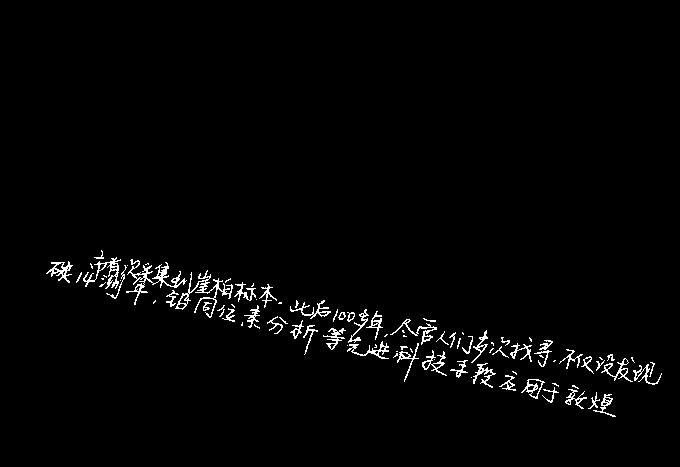 市首次采集到崖柏标本。此后100多年,尽管人们多次找寻,不仅没发现
碳14测年,铅同位素分析等先进科技手段应用于敦煌